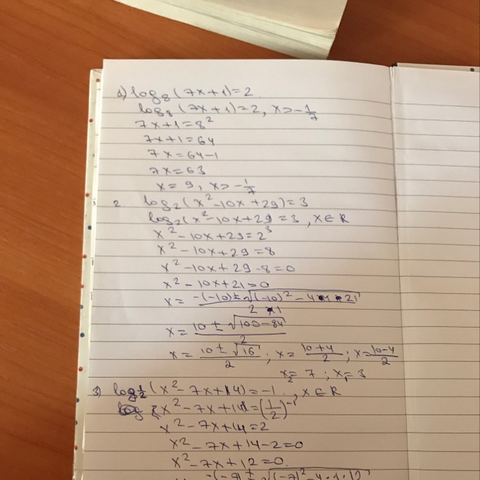 1) log₈(7x+1)=2
log₈(7x+1)=2, x>-1/7
7x+1=8²
7x+1=64
7x=64-1
7x=63
x=9, x>-1/7
2. log₂(x²-10x+29)=3
log₂(x²-10x+29=3, x∈R
x²-10x+29=2³
x²-10x+29=8
x²-10x+29-8=0
x²-10x+21=0
x=-(-10)±√(-10)²-4*1*21/2*1
x=10±√100-84/2
x=10±√16/2; x=10+4/2; x=10-4/2
x₂=7; x₁=3
3) log½(x²-7x+14)=-1, x∈R
x²-7x+14=(1/2)⁻¹
x²-7x+14=2
x²-7x+14-2=0
x²-7x+12=0